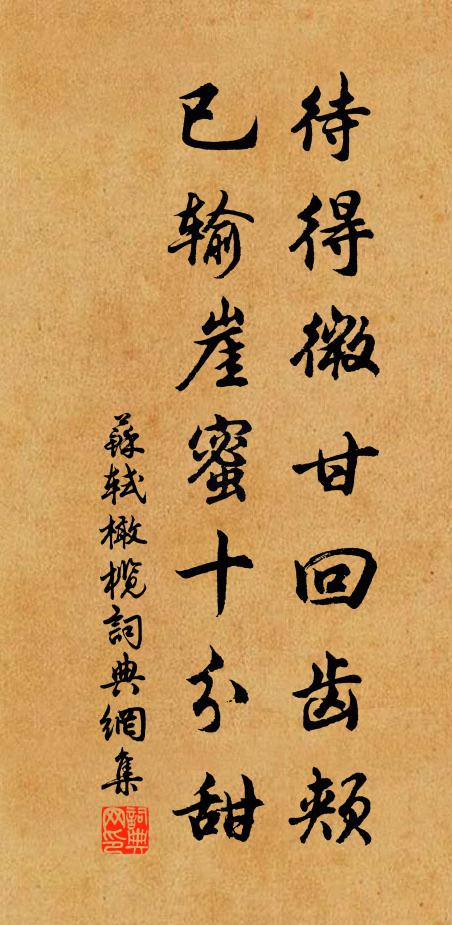 待得微甘回齿颊
已输崖蜜十分甜
蘇轼橄榄詞典網集
詞典网印